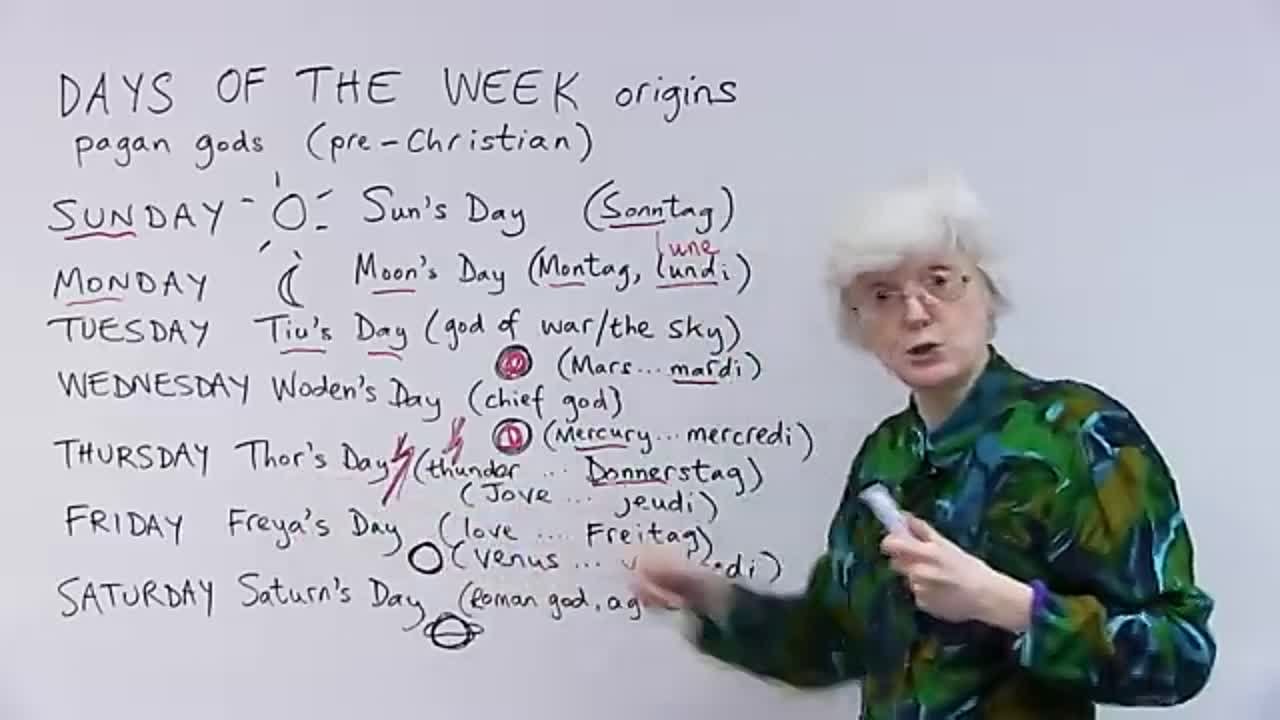 DAYS OF THE WEEK origins
pagan gods (pre-Christian)
SUNDAY Sun's Day (Sonntag)
lune
MONDAY Moon's Day (Montag, lundi)
TUESDAY Tiu's Day (god of war/the sky)
(Mars... mardi)
WEDNESDAY Woden's Day (chief god)
(Mercury... mercredi)
THURSDAY Thor's Day (thunder ... Donnerstag)
(Jove ... jeudi)
FRIDAY Freya's Day (love .... Freitag)
(Venus ...
SATURDAY Saturn's Day (Roman god,